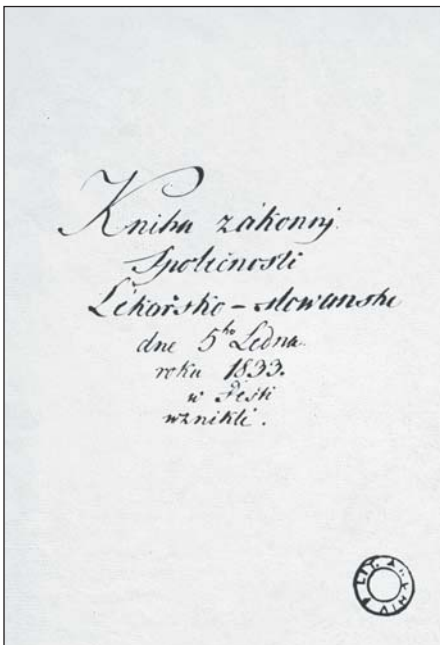 Kniha zákonný
Společnosti
Lékařsko-slowanské
dne 5ho Ledna
roku 1833.
w Pešti
wzniklé.
LIT. ARCHIV